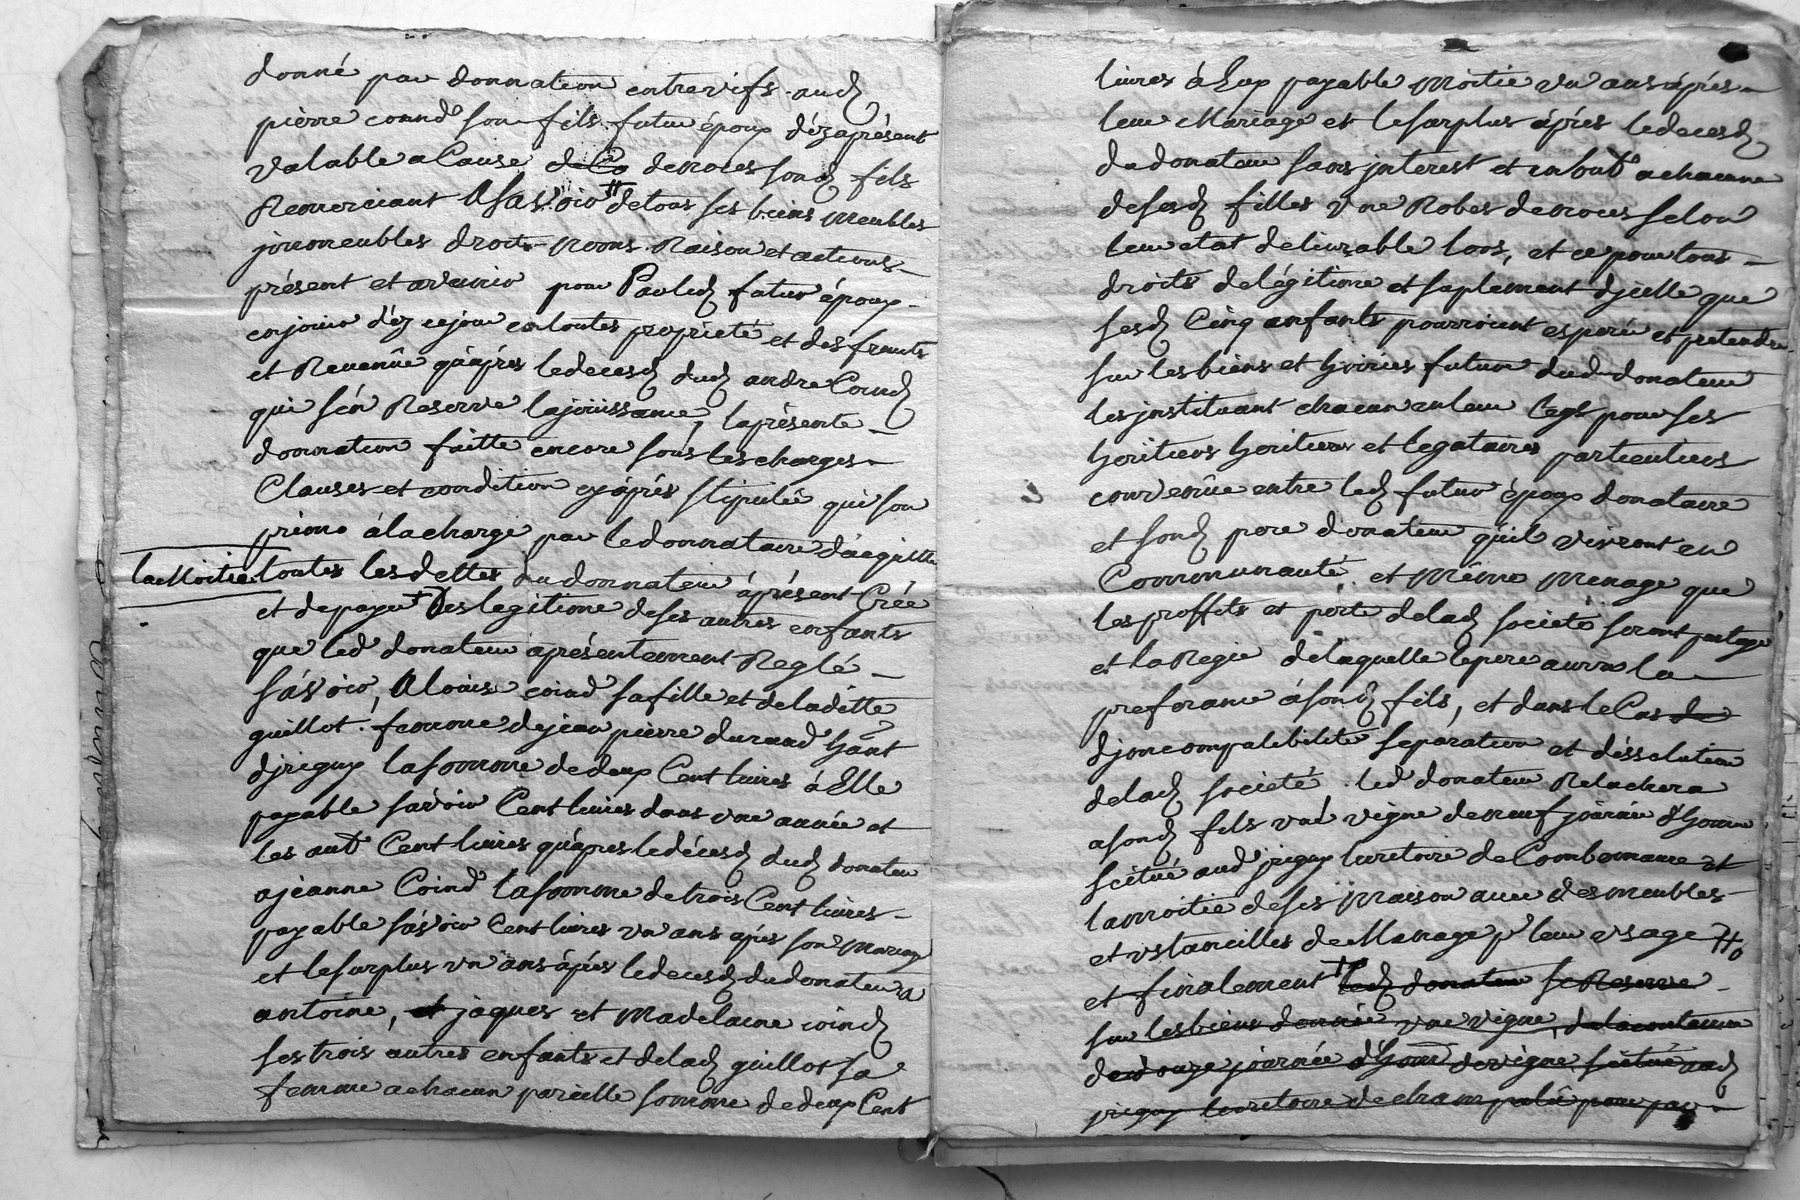 donné par donnation entrevifs aud
pierre coind son fils futur époux dézaprésent
valable a Cause de Co de noces sond fils
Remerciant Asavoir # de tous ses biens meubles
jmmeubles droits noms Raison et actions
présent et avenir pour Par led futur époux
en jouir déz ce jour en toutes proprieté et des fruits
et Revenûe qu'après le deces dud andre Coind
qui s'én Reserve la joüissance, la présente
donnation faitte encore sous les charges
Clauses et condition cy après stipulée qui son
primo à la charge par le donnataire d'acquitter
la Moitie toutes les dettes du donnateur àprésent Créé
et de payer + Les legitime de ses autres enfants
que led donateur aprésentement Reglé
sávoir, A Loüise coind sa fille et de ladítte
guillot femme de jean pierre durand ha͞nt
d'jrigny la somme de deux Cent livres à Elle
payable savoir Cent livres dans une année et
les aut Cent livres qu'àpres le déces dud donateur
a jeanne Coind la somme de trois Cent livres
payable sávoir Cent livres un ans apres son mariage
et le surplus un ans àprès le deces du donateur a
antoine, et jaques et Madelaine coind
ses trois autres enfants et de lad guillot sa
femme a chacun pareille somme de deux Cent
livres à Eux payable moitie un ans àprés
leur Mariage et le surplus àpries le deces d
du donateur sans jnterest et en out a chacune
de ses d filles une Robes de noces selon
leur etat delivrable lors, et ce pour tous
droits de légitime et suplement d'jcelle que
ses d Cinq enfants pourroient esperé et pretendre
sur les biens et hoiries futur dud donateur
les jnstituant chacun en leur Legs pour ses
héritiers heritiers et legataires particuliers
convenûe entre led futur époux donataire
et son d pere donateur qu'il vivront en
Communauté et Même Menage que
les proffits et perte de lad societé seront partagé
et la Regie de laquelle le pere aura la
preferance à son d fils, et dans le Cas de
d'jncompatibilité separation et déssolution
de lad societé led donateur Relachera
a son d fils uné vigne de neuf journée d'homme
scitué aud jrigny territoire de Combemaure et
la moitié de ses maison avec des meubles
et ustancilles de Menage pr leur usage #o
et finalement + led donateur se Reserve
sur les biens donnée une vigne, de la contenue
de douze journée d'hom de vigne scitué aud
jrigny territoire de champalû pour par